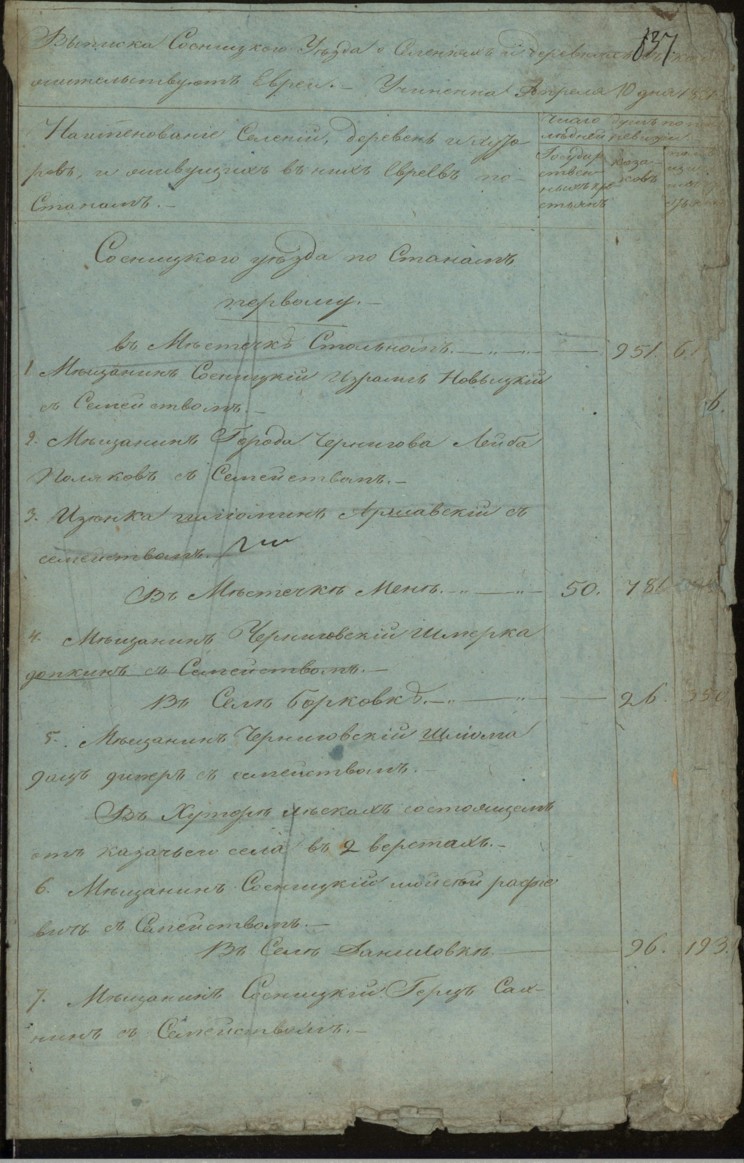 837
Выписка Сосницкого Уезда о Селенияхъ и деревняхъ въ
жительствуютъ Евреи.– Учиненна Апреля 10 дня 18
Число душъ по
следней ревизіи
Наименованіе Селеній, деревень и хуто-
ровъ, и живущихъ въ нихъ Евреевъ по
Станамъ.–
Государ
ствен-
ныхъ кре
стьянъ
Коза-
ковъ
Сосницкого уезда по Станамъ
первому.–
въ Местечкѣ Стольномъ.– 951. 6
1. Мещанинъ Сосницкій Израиль Новицкій
съ Семействомъ.–
6.
2. Мещанинъ Города Чернигова Лейба
Поляковъ съ Семействомъ.–
3. Изънка шліоминъ Аршавскій съ
семействомъ.
Въ Местечке Мене.– 50. 786
4. Мещанинъ Черниговскій Шмерка
допкинъ съ Семействомъ.–
Въ Селе Борковкѣ.– 26.
5. Мещанинъ Черниговскій Шліома
съ семействомъ.–
Въ Хуторе лескахъ состоящемъ
отъ казачьего села въ 2 верстахъ.–
6. Мещанинъ Сосницкій мойсей рафие
вичъ съ Семействомъ.–
Въ Селе Даниловке 96. 193.
7. Мещанинъ Сосницкій Герцъ Сах-
нинъ съ Семействомъ.–